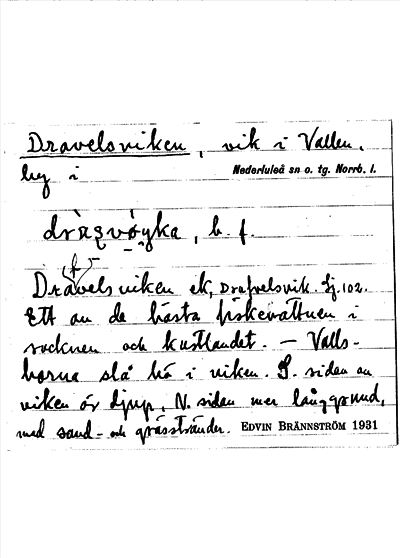 Dravelsviken, vik i Vallen,
by i Nederluleå sn o. tg. Norrb. l.
b. f.
f
Dravelsviken ek, Drafvelsvik. Lj. 102.
Ett av de bästa fiskevattnen i
socknen och kustlandet. — Valls-
borna slå hö i viken. S. sidan av
viken är djup, N. sidan mer långgrund,
med sand- och grässtränder. EDVIN BRÄNNSTRÖM 1931